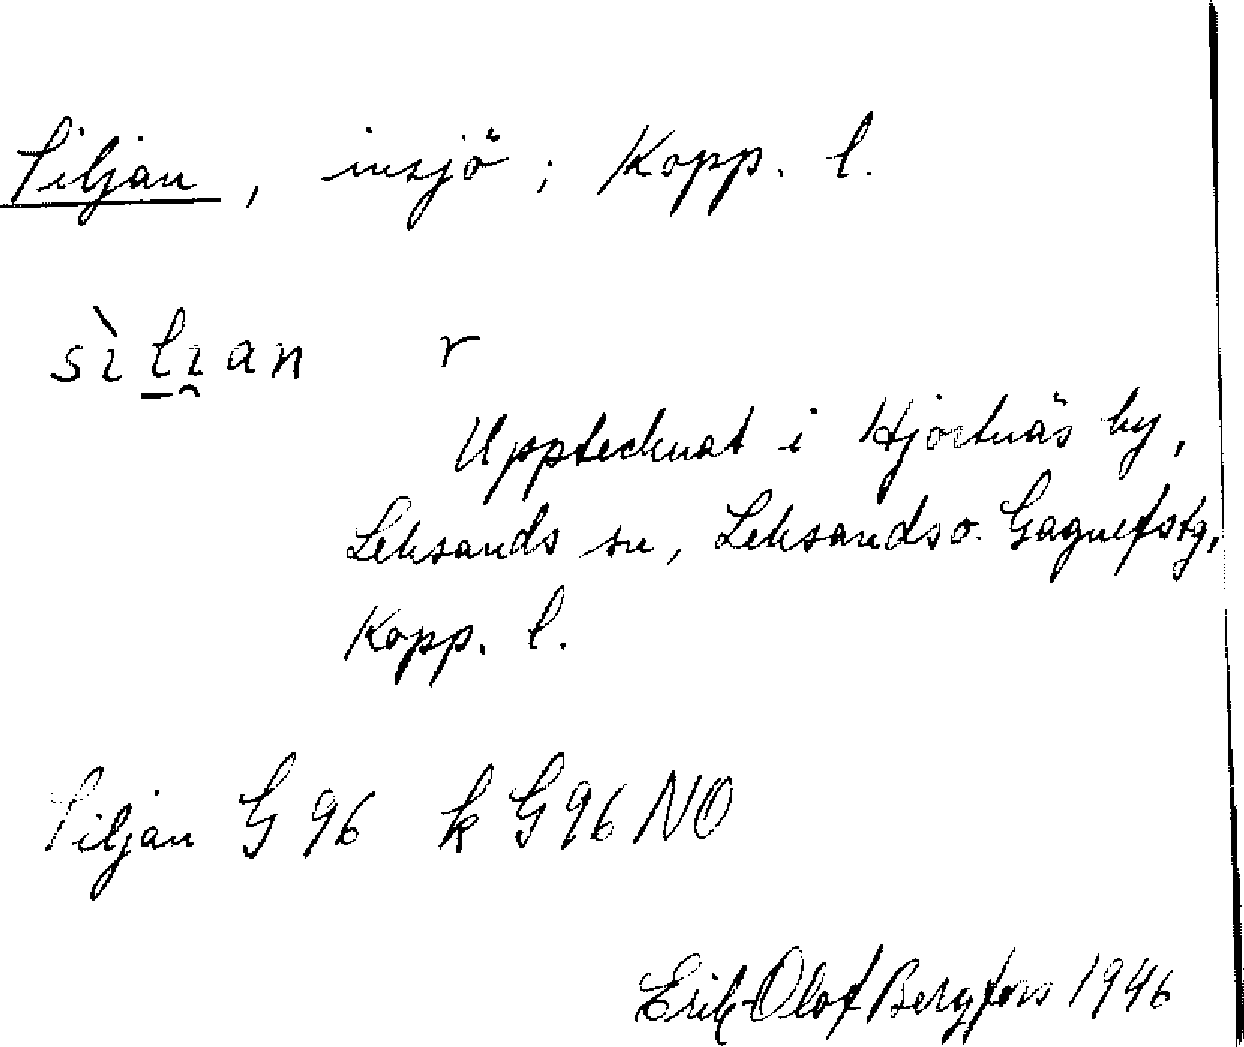 Siljan, insjö; Kopp. l.
sìl̠ı̯an r
Upptecknat i Hjortnäs by,
Leksands sn, Leksands o. Gagnefstg,
Kopp. l.
Siljan G 96 k G 96 NO
Erik-Olof Bergfors 1946